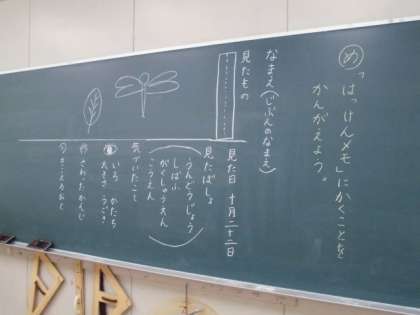 め
「はっけんメモ」にかくことを
かんがえよう。
なまえ(じぶんのなまえ)
見たもの
見た日 十月二十二日
見たばしょ
うんどうじょう
しばふ
がくしゅうえん
こうえん
気づいたこと
いろ かたち
大きさ うごき
さわったかんじ
きこえるおと